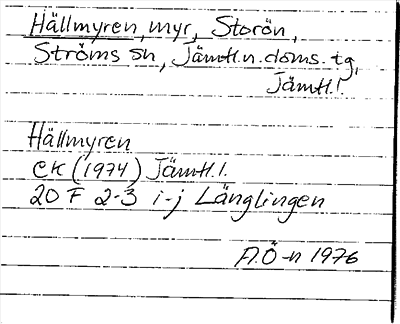 Hällmyren, myr, Storön,
Ströms sn, Jämtl.n.doms.tg,
Jämtl.l.
Hällmyren
EK (1974) Jämtl.l.
20 F 2-3 i-j Långlingen
A.Ö-n 1976